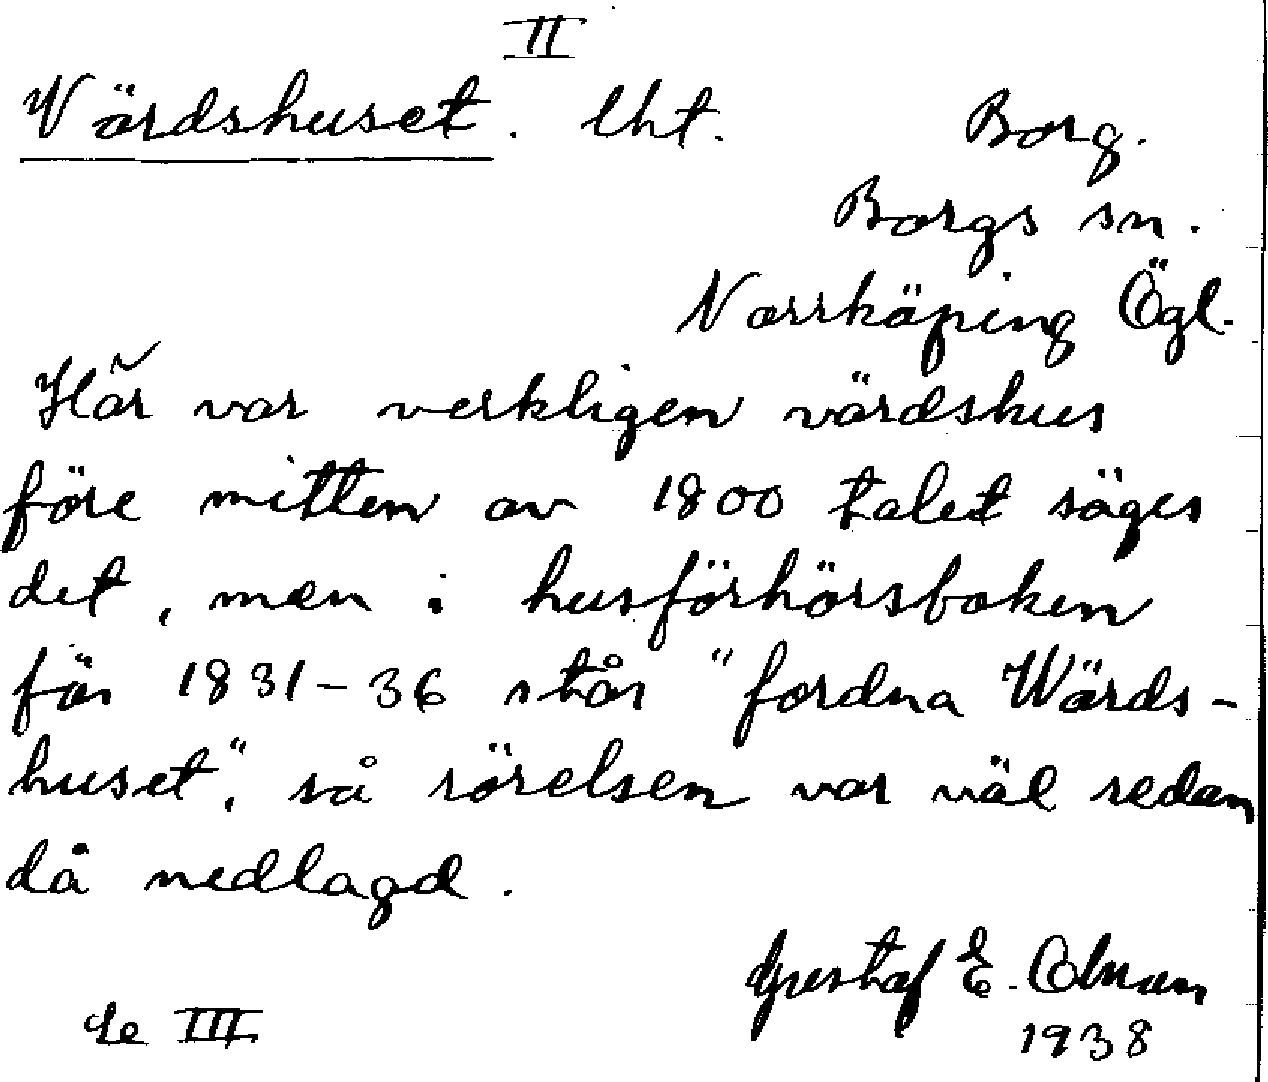 II
Värdshuset. lht. Borg.
Borgs sn.
Norrköping Ögl.
Här var verkligen värdshus
före mitten av 1800 talet säges
det, men i husförhörsboken
för 1831-36 står "fordna Wärds-
huset", så rörelsen var väl redan
då nedlagd.
Gustaf E.
Se III 1938